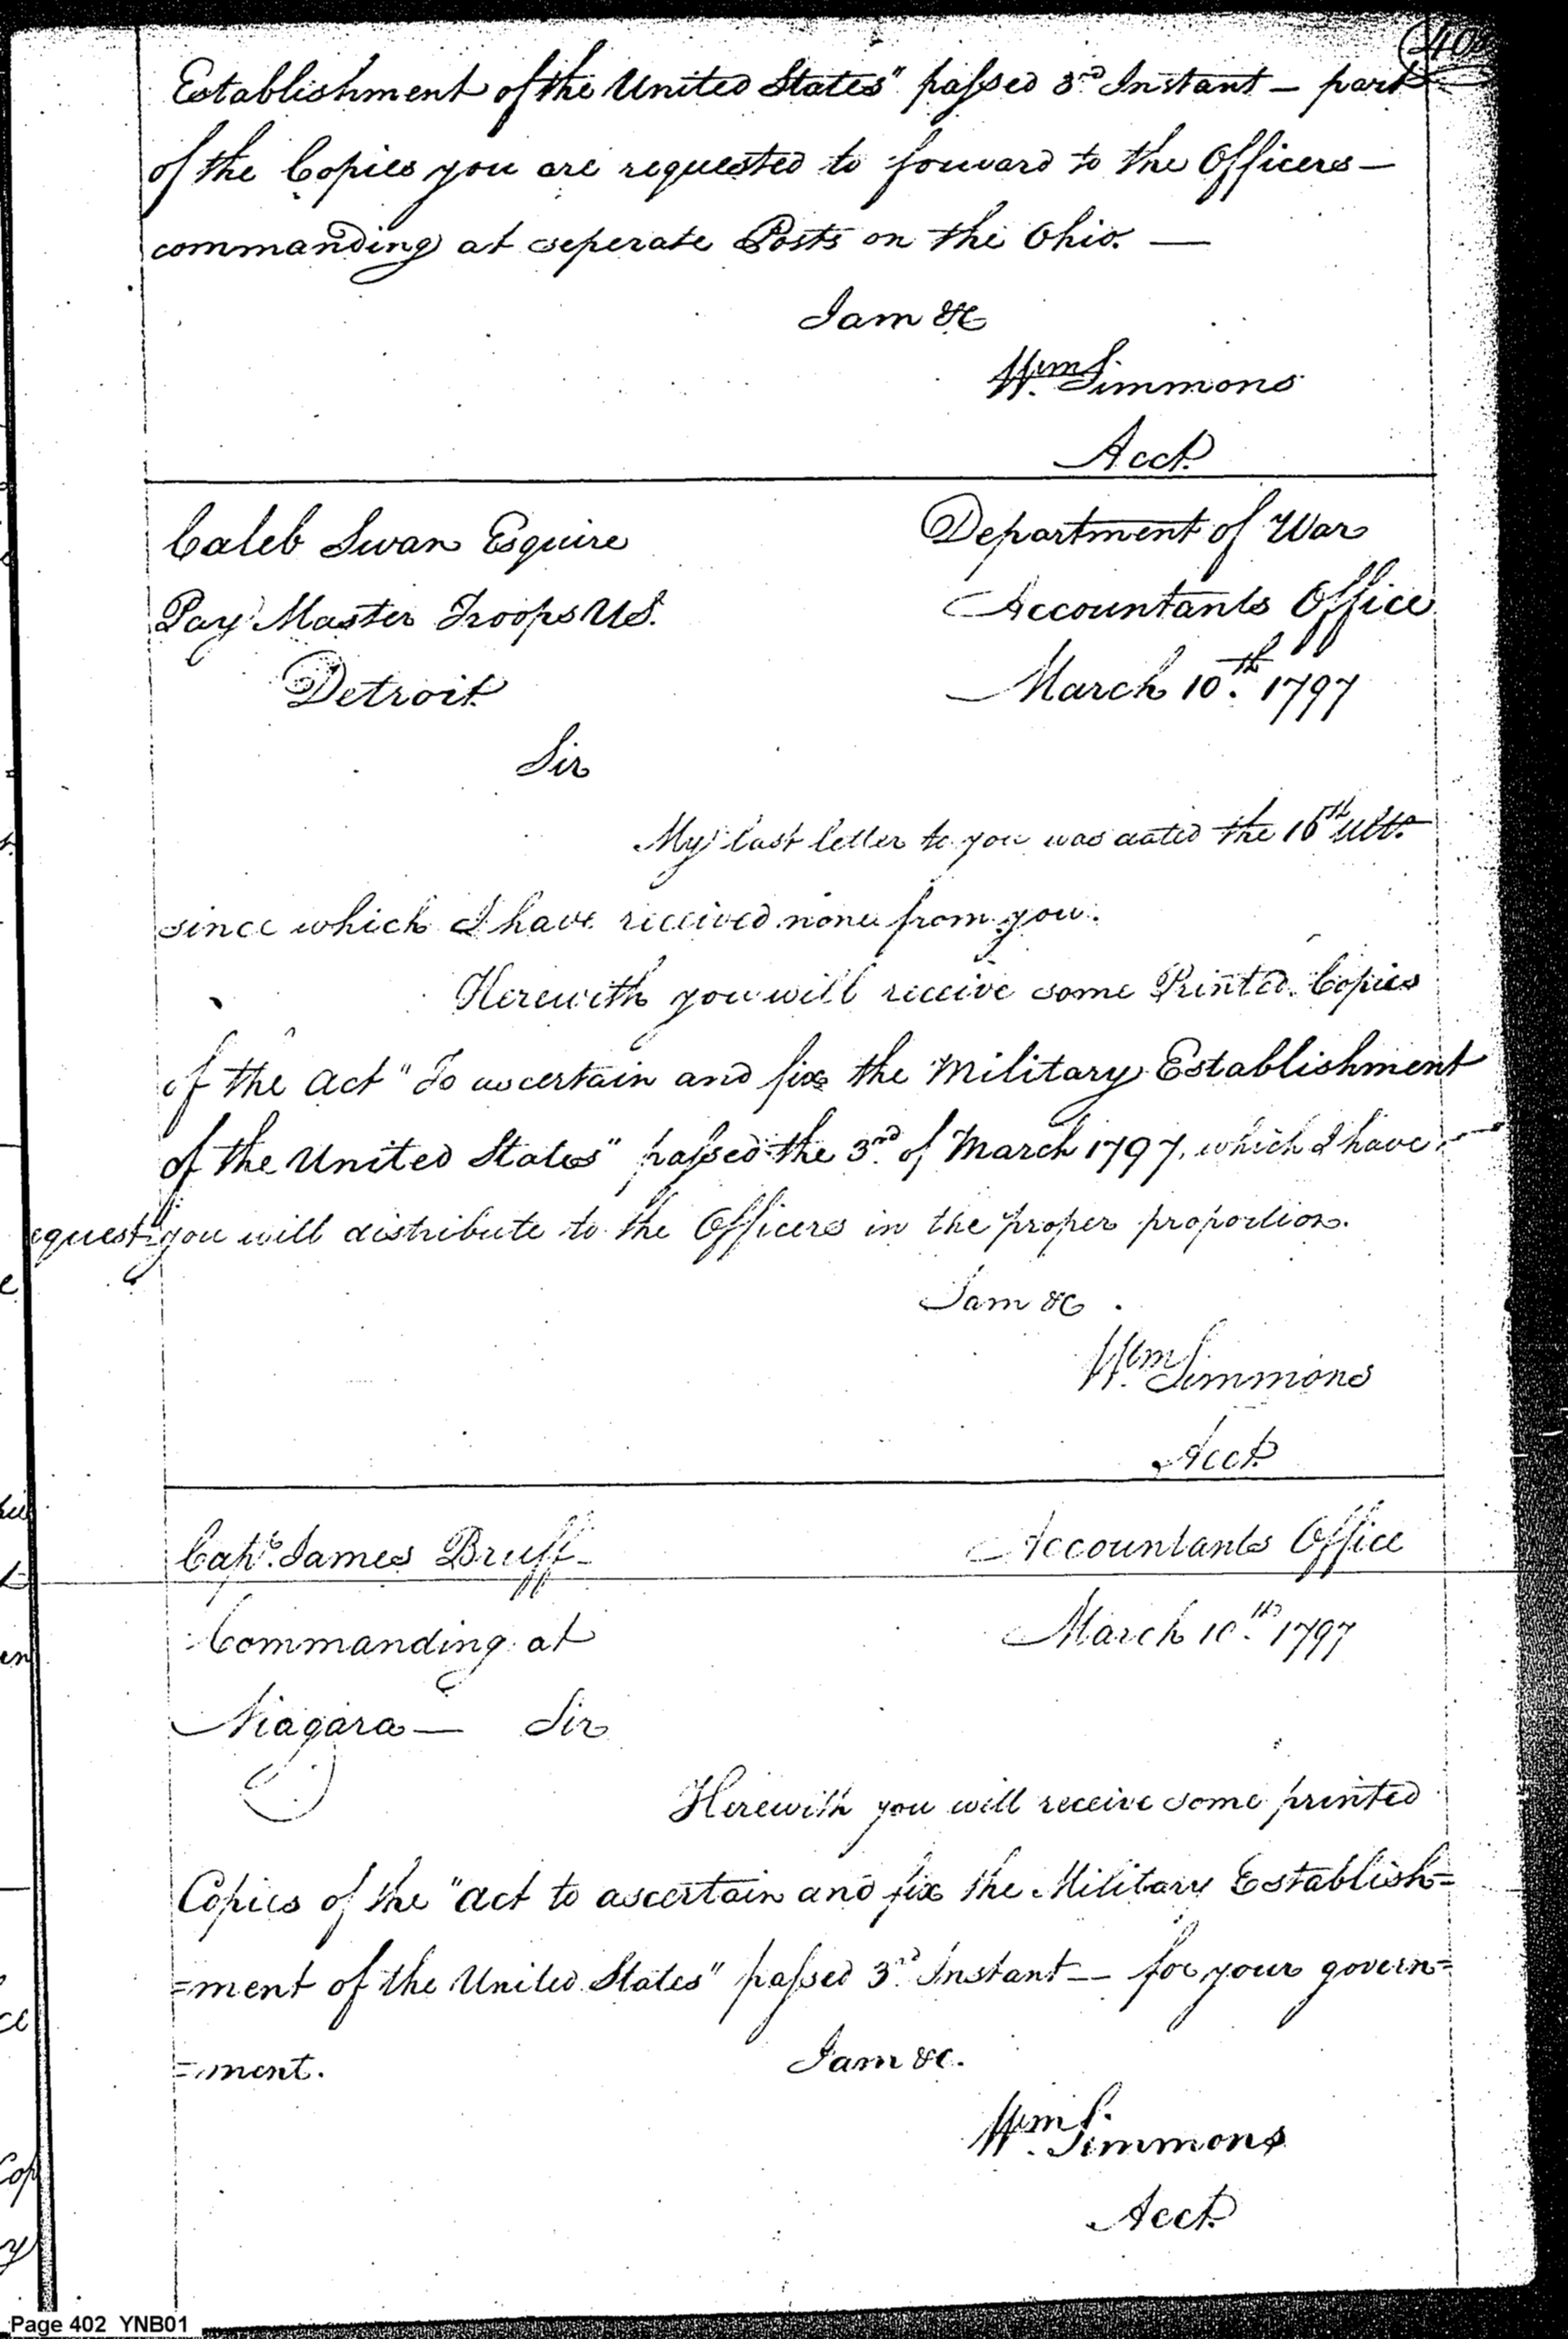 Establishment of the United States" passed 3rd Instant — part
of the Copies you are requested to forward to the Officers —
commanding at seperate Posts on the Ohio. —
I am &c
Wm Simmons
Acct.
Caleb Swan Esquire
Department of War
Pay Master Troops US.
Accountants Office
Detroit
March 10th. 1797
Sir
My last letter to you was dated the 16th Ulto.
since which I have received none from you.
Herewith you will receive some Printed Copies
of the act "To ascertain and fix the Military Establishment
of the United States" passed the 3rd of March 1797, which I have
equest you will distribute to the Officers in the proper proportion.
I am &c
Wm Simmons
Acct.
Capt. James Bruff —
Accountants Office
Commanding at
March 10th. 1797
Niagara — Sir
Herewith you will receive some printed
Copies of the "act to ascertain and fix the Military Establish=
=ment of the United States" passed 3rd Instant — for your govern=
=ment. I am &c.
Wm Simmons
Acct.
Page 402 YNB01